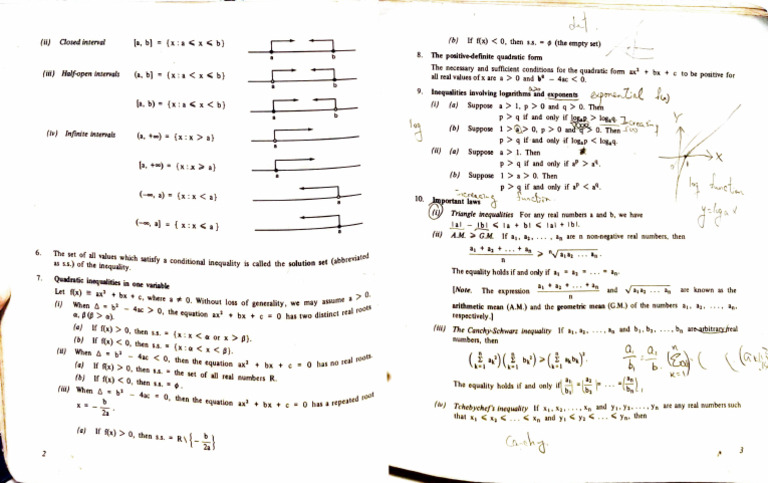 (ii) Closed interval [a, b] = {x : a ⩽ x ⩽ b}
a b
(iii) Half-open intervals (a, b] = {x : a < x ⩽ b}
a b
[a, b) = {x : a ⩽ x < b}
a b
(iv) Infinite intervals (a, +∞) = {x : x > a}
a
[a, +∞) = {x : x ⩾ a}
a
(−∞, a) = {x : x < a}
a
(−∞, a] = {x : x ⩽ a}
a
6. The set of all values which satisfy a conditional inequality is called the solution set (abbreviated
as s.s.) of the inequality.
7. Quadratic inequalities in one variable
Let f(x) = ax² + bx + c, where a ≠ 0. Without loss of generality, we may assume a > 0.
(i) When Δ = b² − 4ac > 0, the equation ax² + bx + c = 0 has two distinct real roots
α, β (β > α).
(a) If f(x) > 0, then s.s. = {x : x < α or x > β}.
(b) If f(x) < 0, then s.s. = {x : α < x < β}.
(ii) When Δ = b² − 4ac < 0, then the equation ax² + bx + c = 0 has no real roots.
(a) If f(x) > 0, then s.s. = the set of all real numbers R.
(b) If f(x) < 0, then s.s. = φ.
(iii) When Δ = b² − 4ac = 0, then the equation ax² + bx + c = 0 has a repeated root
x = − b/2a.
(a) If f(x) > 0, then s.s. = R\{− b/2a}
2
(b) If f(x) < 0, then s.s. = φ (the empty set)
8. The positive-definite quadratic form
The necessary and sufficient conditions for the quadratic form ax² + bx + c to be positive for
all real values of x are a > 0 and b² − 4ac < 0.
9. Inequalities involving logarithms and exponents exponential f(x)
(i) (a) Suppose a > 1, p > 0 and q > 0. Then
p > q if and only if logₐp > logₐq. Increasing
log
(b) Suppose 1 > a > 0, p > 0 and q > 0. Then
p > q if and only if logₐp < logₐq.
(ii) (a) Suppose a > 1. Then
p > q if and only if aᵖ > a^q.
(b) Suppose 1 > a > 0. Then
p > q if and only if aᵖ < a^q.
Y
X
log function
y = log a x
increasing function
10. Important laws
(i) Triangle inequalities For any real numbers a and b, we have
|a| − |b| ⩽ |a + b| ⩽ |a| + |b|.
(ii) A.M. ⩾ G.M. If a₁, a₂, . . . , aₙ are n non-negative real numbers, then
(a₁ + a₂ + . . . + aₙ)/n ⩾ ⁿ√(a₁ a₂ . . . aₙ).
The equality holds if and only if a₁ = a₂ = . . . = aₙ.
[Note. The expression (a₁ + a₂ + . . . + aₙ)/n and ⁿ√(a₁ a₂ . . . aₙ) are known as the
arithmetic mean (A.M.) and the geometric mean (G.M.) of the numbers a₁, a₂, . . . , aₙ,
respectively.]
(iii) The Canchy-Schwarz inequality If a₁, a₂, . . . , aₙ and b₁, b₂, . . . , bₙ are arbitrary real
numbers, then
(Σ aₖ²)(Σ bₖ²) ⩾ (Σ aₖbₖ)².
The equality holds if and only if (a₁/b₁) = (a₂/b₂) = . . . = (aₙ/bₙ).
(iv) Tchebychef's inequality If x₁, x₂, . . . , xₙ and y₁, y₂, . . . , yₙ are any real numbers such
that x₁ ⩽ x₂ ⩽ . . . ⩽ xₙ and y₁ ⩽ y₂ ⩽ . . . ⩽ yₙ, then
Cauchy
3